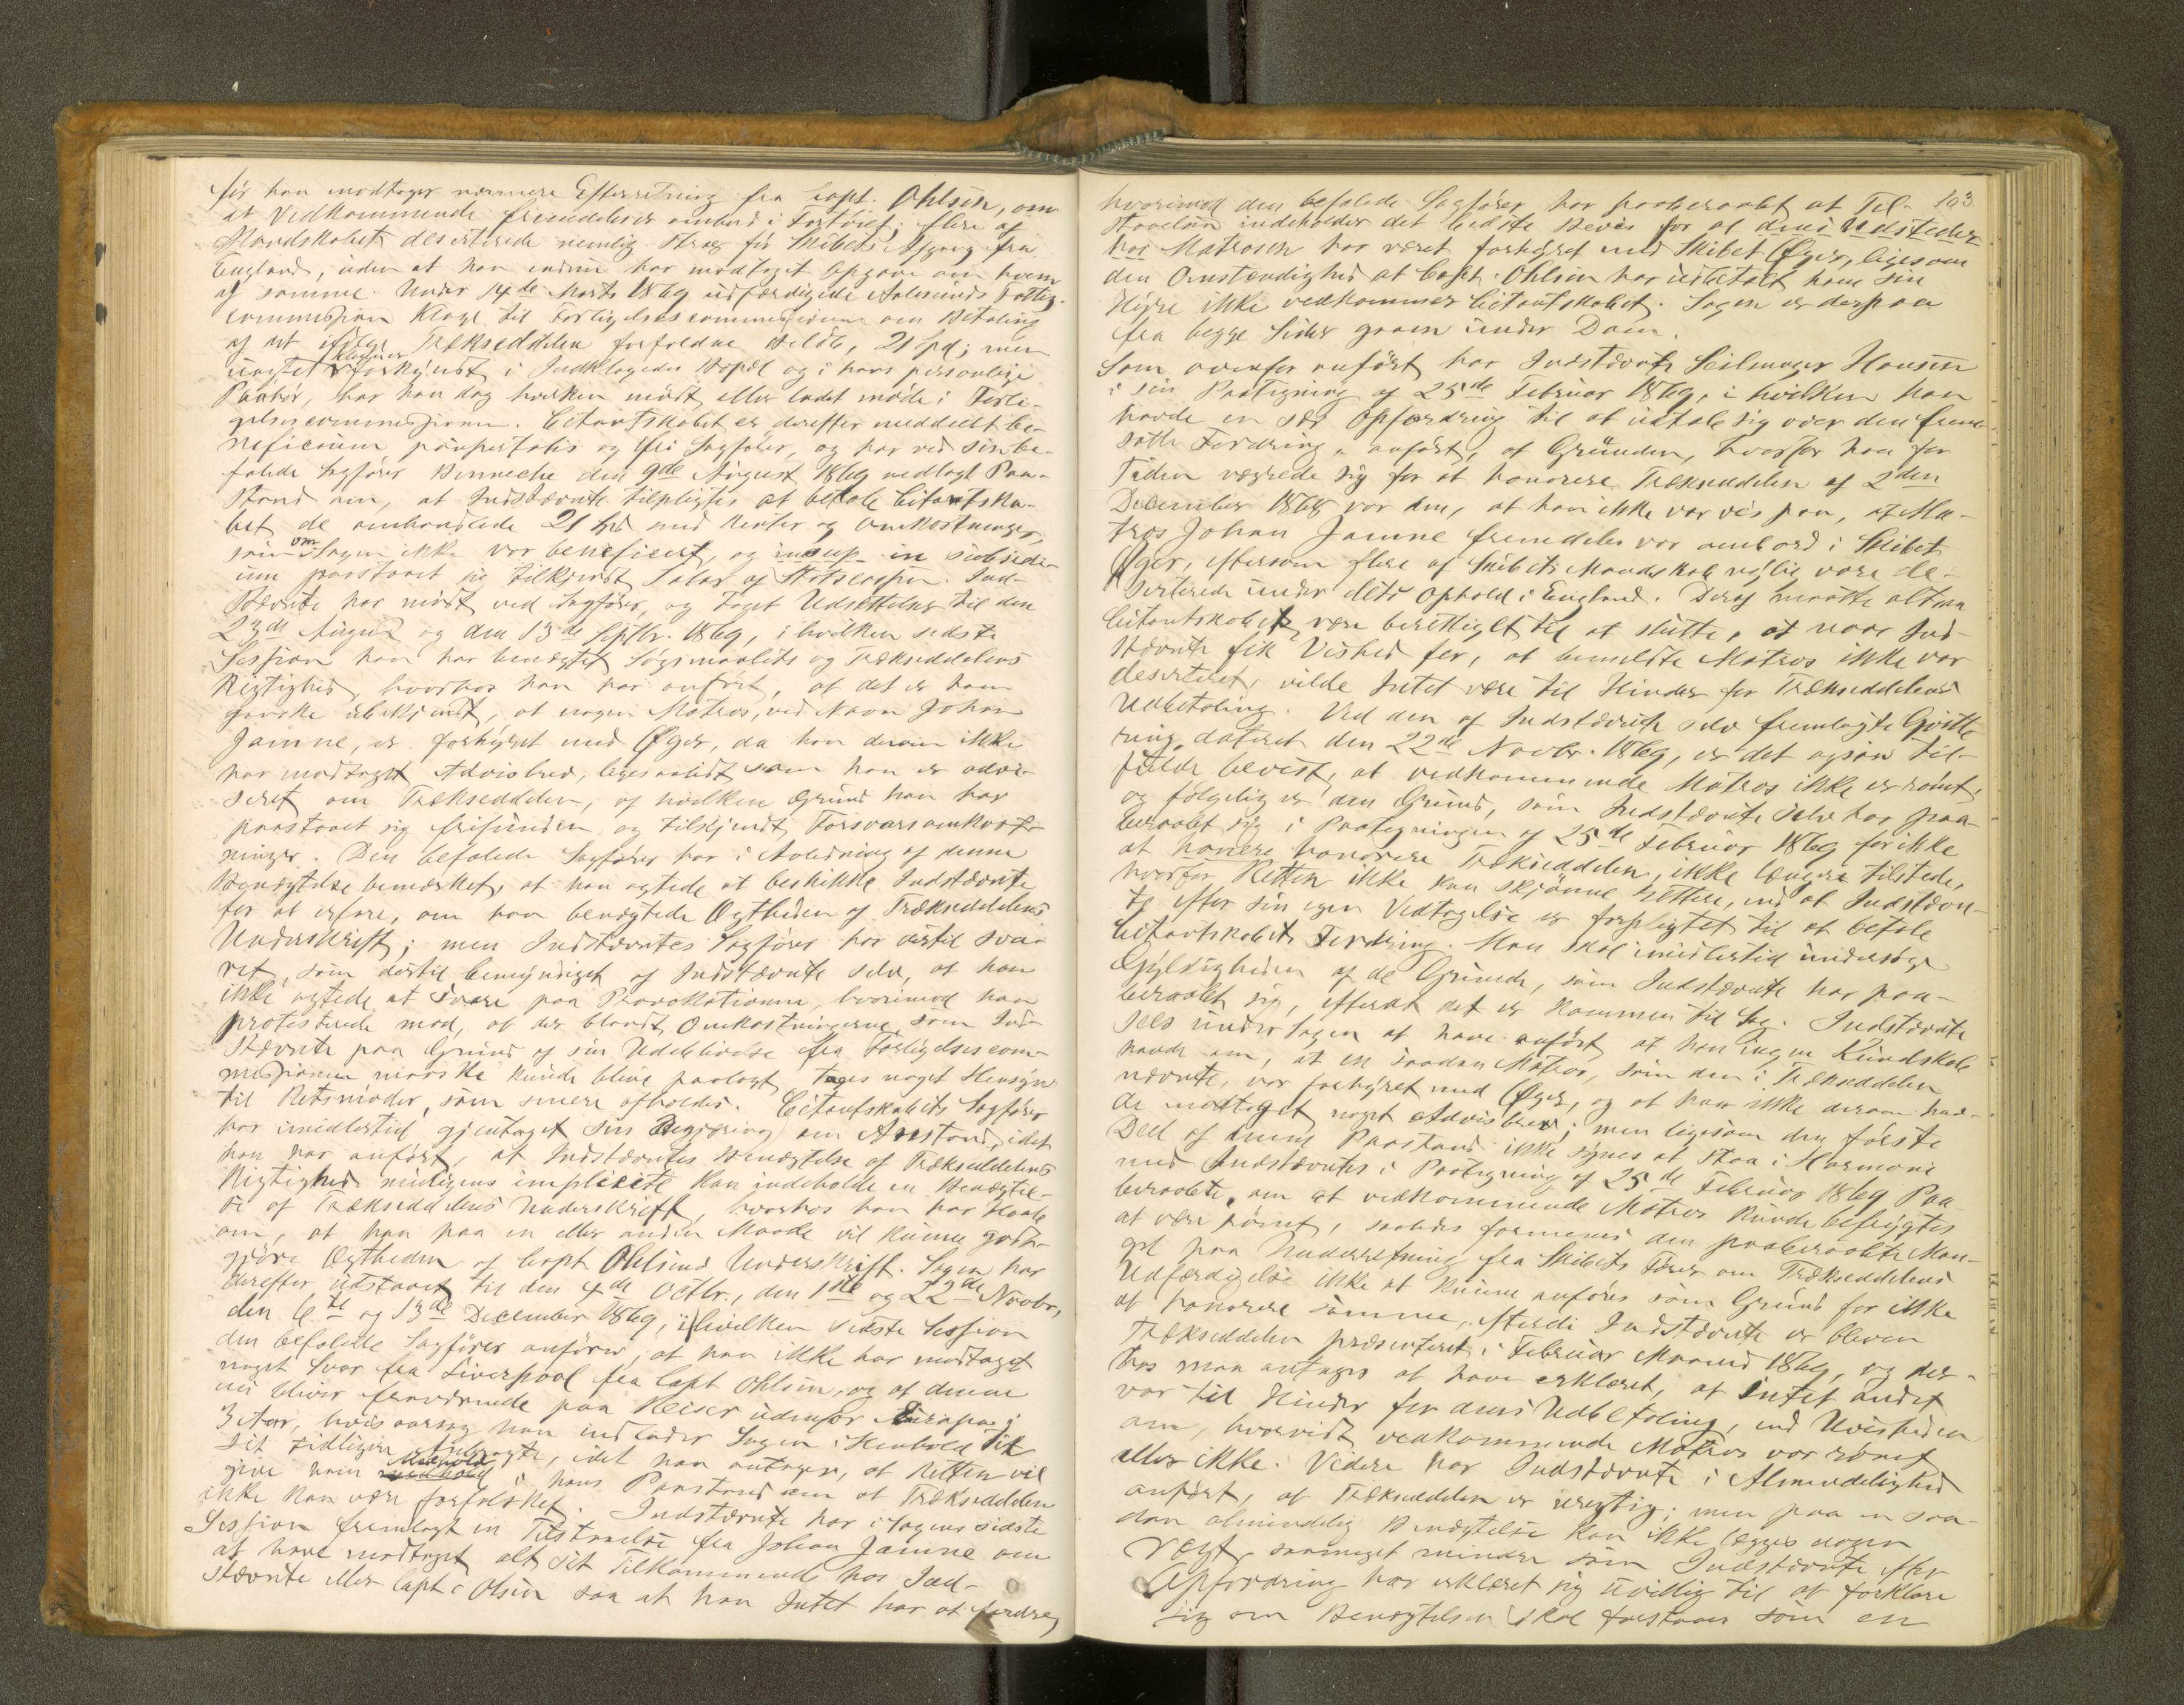 før han modtager nærmere Efterretning fra Capt. Ohlsen, om
at Vedkommende fremdeles er ombord i Fartøiet; flere af
Mandskabet deserterede nemlig strax før Skibets Afgang fra
England, uden at han endnu har modtaget Opgave om hvem
af samme. Under 14de Marts 1869 udfærdigede Aalesunds Fattig-
commission Klage til Forligelsescommissionen om Betaling
af det ifølge Trækseddelen forfaldne Beløb, 21 Spd; men
uagtet Klagen er forkyndt i Indklagedes Bopæl og i hans personlige
Paahør, har han dog hverken mødt eller ladet møde i Forli-
gelsescommissionen. Citantskabet er derefter meddeelt be-
neficium paupertatis og fri Sagfører, og har ved sin be-
falede Sagfører Binneche den 9de August 1869 nedlagt Paa-
stand om, at Indstævnte tilpligtes at betale Citantska-
bet de omhandlede 21 Spd med Renter og Omkostninger,
som om Sagen ikke var beneficeret, og in subsidi-
um paastaaet sig tilkjendt Salær af Statscassen. Ind-
stævnte har mødt ved Sagfører, og taget Udsættelse til den
23de August og den 13de Septbr. 1869, i hvilken sidste
Session han har benægtet Søgsmaalets og Trækseddelens
Rigtighed, hvorhos han har anført, at det er ham
ganske ubekjendt, at nogen Matros, ved Navn Johan
Jamne, er forhyret med Øger, da han derom ikke
har modtaget Advisbrev, ligesaalidt som han er advi-
seret om Trækseddelen, af hvilken Grund han har
paastaaet sig frifunden og tilkjendt Forsvarsomkost-
ninger. Den befalede Sagfører har i Anledning af denne
Benægtelse bemærket, at han agtede at beskikke Indstævnte
for at erfare, om han benægtede Ægtheden af Trækseddelens
Underskrift; men Indstævntes Sagfører har dertil sva-
ret, som dertil bemyndiget af Indstævnte selv, at han
ikke agtede at svare paa Provokationen, hvorimod han
protesterede mod, at der blandt Omkostningerne, som Ind-
stævnte paa Grund af sin Udeblivelse fra Forligelsescom-
missionen maaske kunde blive paalagt, toges noget Hensyn
til Retsmøder, som senere afholdes. Citantskabets Sagfører
har imidlertid gjentaget sin Begjæring om Anstand, idet
han har anført, at Indstævntes Benægtelse af Trækseddelens
Rigtighed muligens implicite kan indeholde en Benægtel-
se af Trækseddelens Underskrift, hvorhos han har Haab
om, at han paa en eller anden Maade vil kunne godt-
gjøre Ægtheden af Capt Ohlsens Underskrift. Sagen har
derefter udstaaet til den 4de Octbr., den 1ste og 22de Novbr,
den 6te og 13de December 1869, i hvilken sidste Session
den befalede Sagfører anførte, at han ikke har modtaget
noget Svar fra Liverpool fra Capt Ohlsen, og at denne
nu bliver fraværende paa Reiser udenfor Europa i
3 Aar, hvis aarsag han indlader Sagen i Henhold til
sit tidligere Anbragte, idet han antager, at Retten vil
give ham Medhold i hans Paastand om at Trækseddelen
ikke kan være forfalsket. Indstævnte har i Sagens sidste
Session fremlagt en Tilstaaelse fra Johan Jamne om
at have modtaget alt sit Tilkommende hos Ind-
stævnte eller Capt. Olsen saa at han Intet har at fordre,
103
hvorimod den befalede Sagfører har paaberaabt at Til-
staaelsen indeholder det bedste Beviis for at dens Udsteder
hos Matrosen har været forhyret med Skibet Øger, ligesom
den Omstændighed at Capt. Ohlsen har udbetalt ham sin
Hyre ikke vedkommer Citantskabet. Sagen er derpaa
fra begge Sider gaaen under Dom.
Som ovenfor anført har Indstævnte Seilmager Hansen
i sin Paategning af 25de Februar 1869, i hvilken han
havde en sær Opfordring til at udtale sig over den frem-
satte Fordring, anført, at Grunden, hvorfor han for
Tiden vægrede sig for at honorere Trækseddelen af 2den
December 1868 var den, at han ikke var vis paa, at Ma-
tros Johan Jamne fremdeles var ombord i Skibet
Øger, eftersom flere af Skibets Mandskab nylig vare de-
serterede under dets Ophold i England. Deraf maatte altsaa
Citantskabet være berettiget til at slutte, at naar Ind-
stævnte fik Vished for, at bemeldte Matros ikke var
deserteret, vilde Intet være til Hinder for Trækseddelens
Udbetaling. Ved den af Indstævnte selv fremlagte Qvitte-
ring, dateret den 22de Novbr. 1869, er det ogsaa til-
fulde bevist, at vedkommende Matros ikke er rømt,
og følgelig er den Grund, som Indstævnte selv har paa-
beraabt sig i Paategningen af 25de Februar 1869 for ikke
at honorere Trækseddelen, ikke længere tilstede,
hvorfor Retten ikke kan skjønne rettere, end at Indstævn-
te efter sin egen Vedtagelse er forpligtet til at betale
Citantskabets Fordring. Man skal imidlertid undersøge
Gyldigheden af de Grunde, som Indstævnte har paa-
beraabt sig, efterat det er kommen til Sag. Indstævnte
sees under Sagen at have anført at han ingen Kundskab
havde om, at en saadan Matros, som den i Trækseddelen
nævnte, var forhyret med Øger, og at han ikke derom hav-
de modtaget noget Advisbrev; men ligesom den første
Deel af denne Paastand ikke synes at staa i Harmoni
med Indstævntes i Paategning af 25de Februar 1869 Paa-
beraabte, om at vedkommende Matros kunde befrygtes
at være rømt, saaledes formenes den paaberaabte Man-
gel paa Underretning fra Skibets Fører om Trækseddelens
Udfærdigelse ikke at kunne anføres som Grund for ikke
at honorere samme, efterdi Indstævnte er bleven
Trækseddelen præsenteret i Februar Maaned 1869, og der-
hos maa antages at have erklæret, at Intet andet
var til Hinder for dens Udbetaling, end Uvisheden
om, hvorvidt vedkommende Matros var rømt
eller ikke. Videre har Indstævnte i Almindelighed
anført, at Trækseddelen er urigtig; men paa en saa-
dan almindelig Benægtelse kan ikke lægges nogen
Vægt, saameget mindre som Indstævnte efter
Opfordring har erklæret sig uvillig til at forklare
sig om Benægtelsen skal forstaaes som en